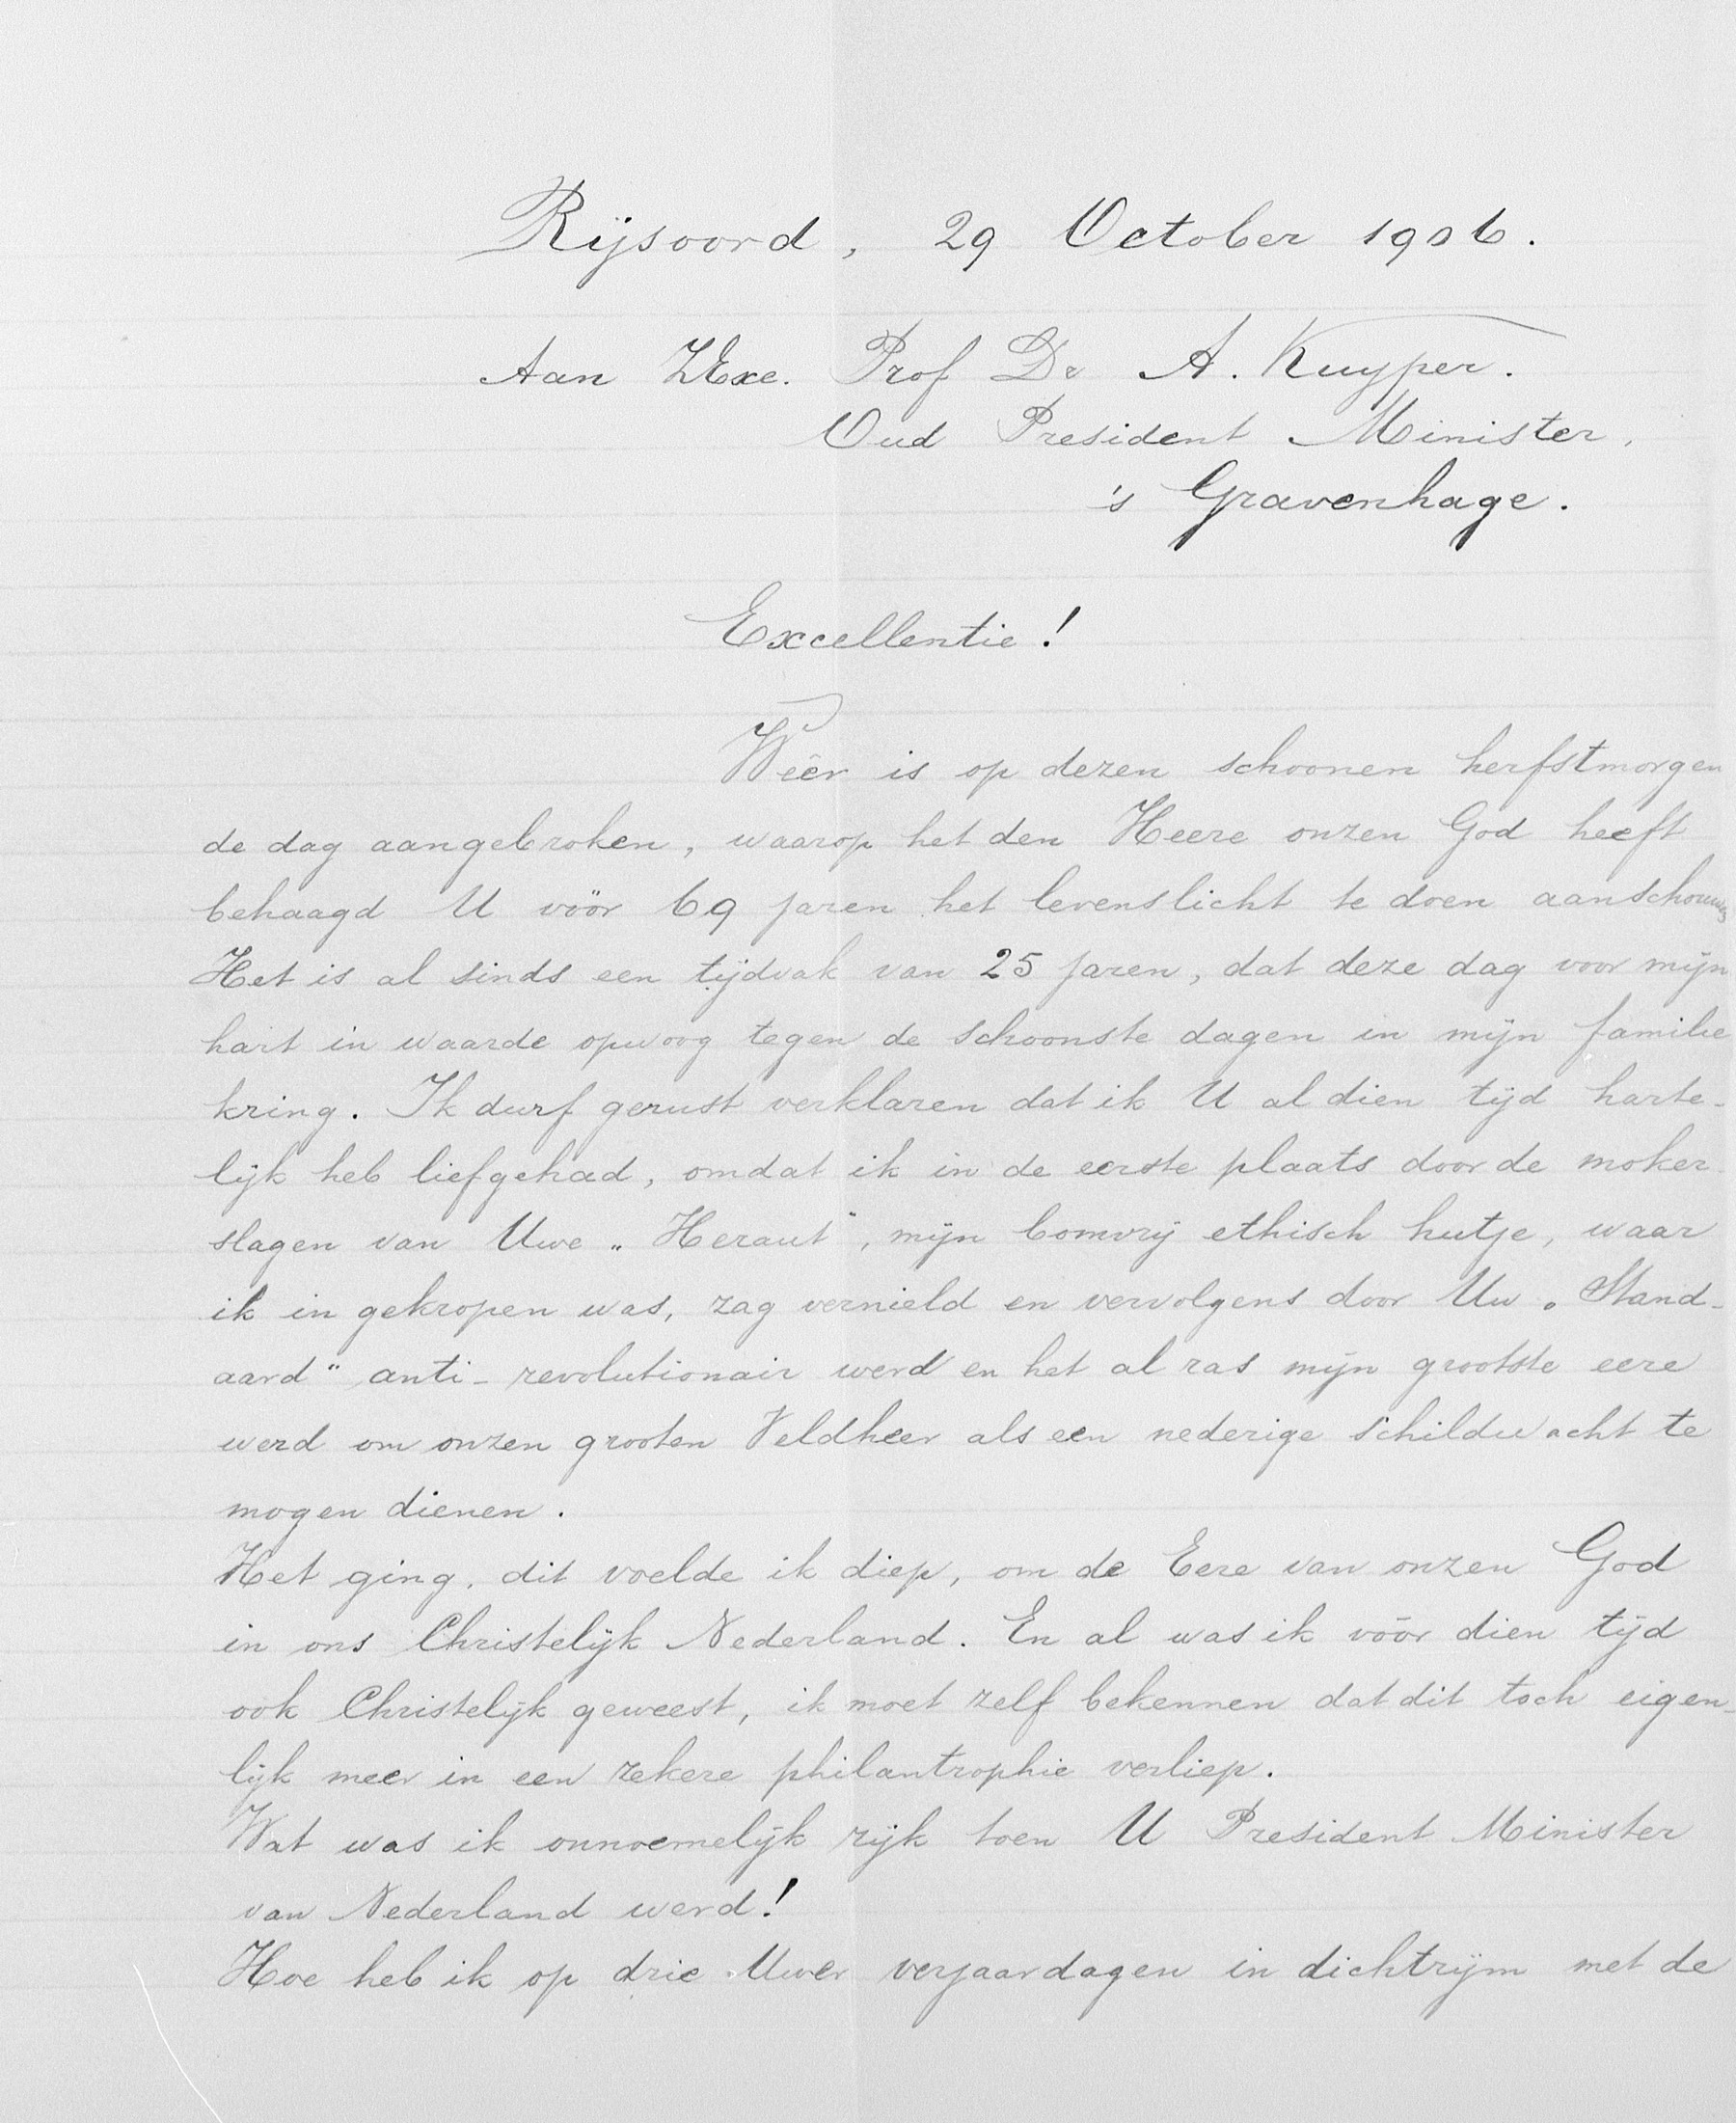 Rijsoord, 29 October 1906.
Aan ZExc. Prof Dr A. Kuyper.
Oud President Minister,
's Gravenhage.
Excellentie!
Wêêr is op dezen schoonen herfstmorgen
de dag aangebroken, waarop het den Heere onzen God heeft
behaagd U vóór 69 jaren het levenslicht te doen aanschouwen
Het is al sinds een tijdvak van 25 jaren, dat deze dag voor mijn
hart in waarde opwoog tegen de schoonste dagen in mijn familie
kring. Ik durf gerust verklaren dat ik U al dien tijd harte-
lijk heb liefgehad, omdat ik in de eerste plaats door de moker-
slagen van Uwe „Heraut", mijn bomvrij ethisch hutje, waar
ik in gekropen was, zag vernield en vervolgens door Uw „Stand-
aard" anti-revolutionair werd en het al ras mijn grootste eere
werd om onzen grooten Veldheer als een nederige schildwacht te
mogen dienen.
Het ging, dit voelde ik diep, om de Eere van onzen God
in ons Christelijk Nederland. En al was ik vóór dien tijd
ook Christelijk geweest, ik moet zelf bekennen dat dit toch eigen-
lijk meer in een zekere philantrophie verliep.
Wat was ik onnoemelijk rijk toen U President Minister
van Nederland werd!
Hoe heb ik op drie Uwer verjaardagen in dichtrijm met de